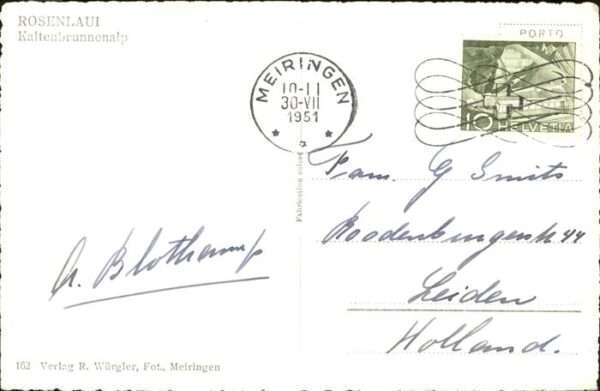 ROSENLAUI
Kaltenbrunnenalp
PORTO
MEIRINGEN
10-11
30-VII
1951
10 HELVETIA
Fam. G Smits
Roodenburgerstr 44
Leiden
Holland.
A. Blothamp
Fabrication suisse
162 Verlag R. Würgler, Fot., Meiringen